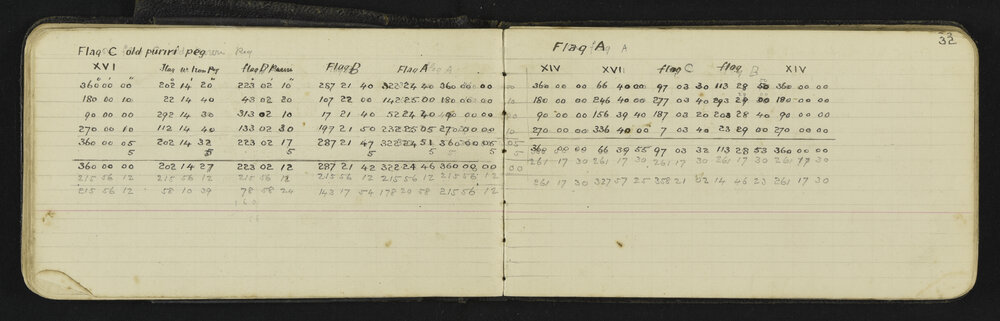 Flag C old puriri peg
XVI Flag W. Iron Peg flag D Puriri Flag B Flag A
360 00 00 202 14 20 223 02 10 287 21 40 322 24 40 360 00 00
180 00 10 22 14 40 43 02 20 107 22 00 142 25 00 180 00 00
90 00 00 292 14 30 313 02 10 17 21 40 52 24 40 90 00 00
270 00 10 112 14 40 133 02 30 197 21 50 232 25 05 270 00 00
360 00 05 202 14 32 223 02 17 287 21 47 322 24 51 360 00 05
5 5 5 5 5 5
360 00 00 202 14 27 223 02 12 287 21 42 322 24 46 360 00 00
215 56 12 215 56 12 215 56 12 215 56 12 215 56 12 215 56 12
215 56 12 58 10 39 78 58 24 143 17 54 178 20 58 215 56 12
32
Flag A
XIV XVII flag C flag B XIV
360 00 00 66 40 00 97 03 30 113 28 50 360 00 00
180 00 00 246 40 00 277 03 40 293 29 00 180 00 00
90 00 00 156 39 40 187 03 20 203 28 40 90 00 00
270 00 00 336 40 00 7 03 40 23 29 00 270 00 00
360 00 00 66 39 55 97 03 32 113 28 53 360 00 00
261 17 30 261 17 30 261 17 30 261 17 30 261 17 30
261 17 30 327 57 25 358 21 02 14 46 23 261 17 30